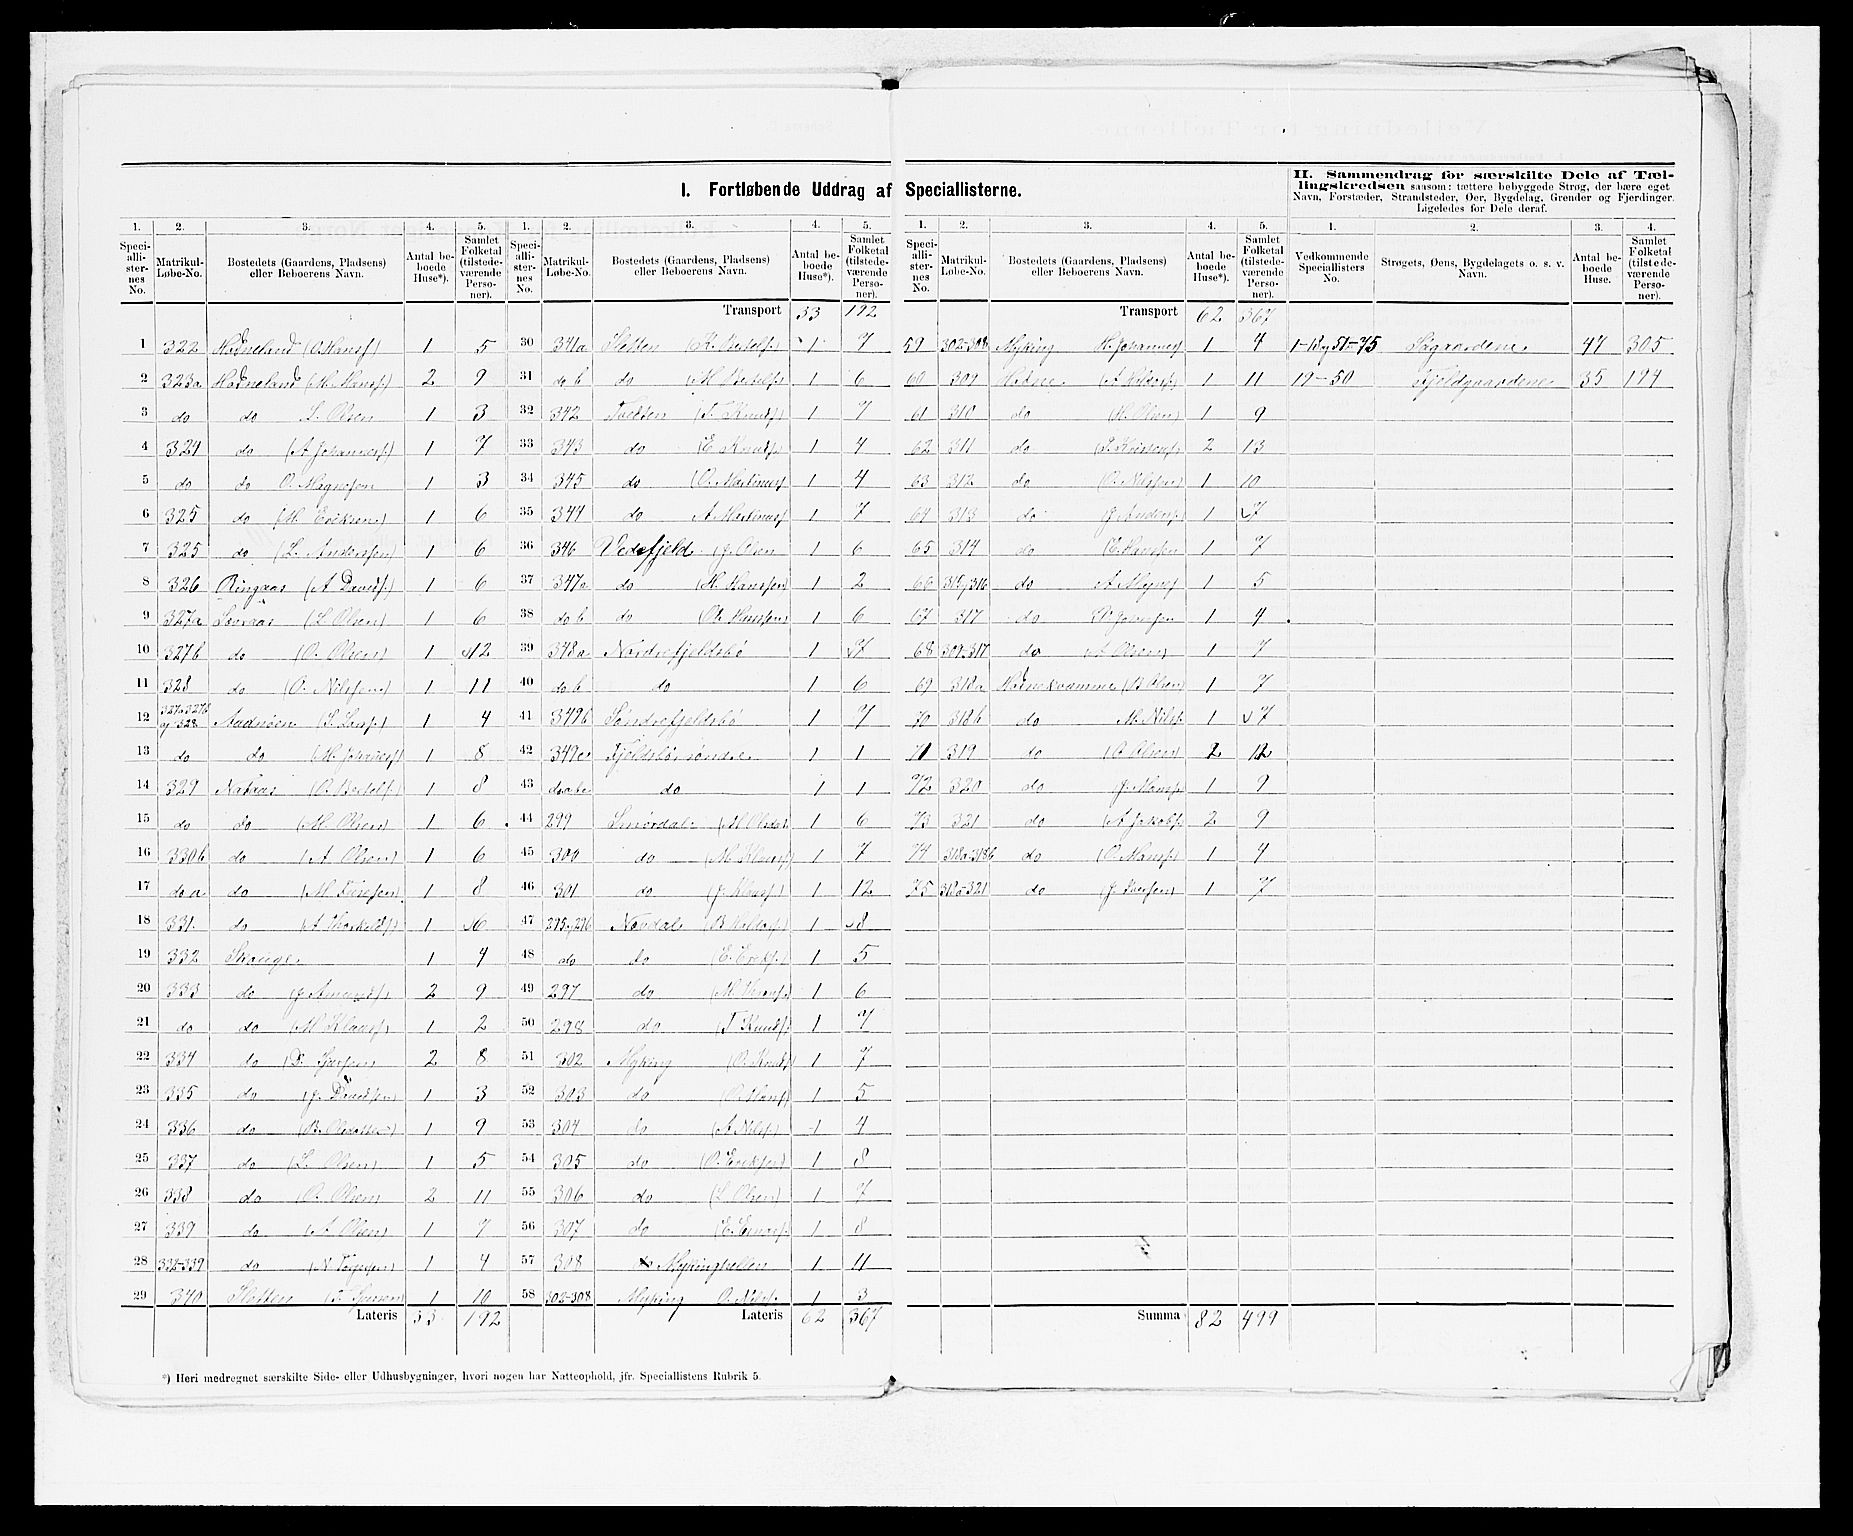 I. Fortløbende Uddrag af Speciallisterne.
II. Sammendrag for særskilte Dele af Tællingskredsen saasom: tættere bebyggede Strøg, der bære eget Navn, Forstæder, Strandsteder, Øer, Bygdelag, Grender og Fjerdinger. Ligeledes for Dele deraf.
1. 2. 3. 4. 5. 1. 2. 3. 4. 5. 1. 2. 3. 4. 5. 1. 2. 3. 4.
Speciallisternes No. Matrikul-Løbe-No. Bostedets (Gaardens, Pladsens) eller Beboerens Navn. Antal beboede Huse*). Samlet Folketal (tilstedeværende Personer).
Speciallisternes No. Matrikul-Løbe-No. Bostedets (Gaardens, Pladsens) eller Beboerens Navn. Antal beboede Huse*). Samlet Folketal (tilstedeværende Personer).
Speciallisternes No. Matrikul-Løbe-No. Bostedets (Gaardens, Pladsens) eller Beboerens Navn. Antal beboede Huse*). Samlet Folketal (tilstedeværende Personer).
Vedkommende Speciallisters No. Strøgets, Øens, Bygdelagets o. s. v. Navn. Antal beboede Huse. Samlet Folketal (tilstedeværende Personer).
1 322 Hodneland (O Hansf) 1 5
2 323a Hodneland (M. Hansf) 2 9
3 do do L. Olsen 1 3
4 324 do (A Johannesf.) 1 7
5 do do O. Magnesen 1 3
6 325 do (M. Eriksen) 1 6
7 325 do (L. Anderssen) 1 6
8 326 Ringaas (A Davidsf.) 1 6
9 327a (L Olsen) 1 6
10 327b do (O. Olsen) 1 12
11 328 do (O. Nilssen) 1 11
12 327a327b og 328 (L. Larsf.) 1 4
13 do do 1 8
14 329 Nataas (O Bertelsf.) 1 8
15 do do (M. Olsen) 1 6
16 330b do (A Olsen) 1 6
17 do a do (M. Iversen) 1 8
18 331. do (A Thorkildsf) 1 6
19 332 Skauge 1 4
20 333 do (J Amundsf) 2 9
21 do do (M Klausf) 1 2
22 334 do 2 8
23 335 do (J. Davidsen) 1 3
24 336 do (B. Olsdatter) 1 9
25 337 do (L. Olsen) 1 5
26 338 do (O. Olsen) 2 11
27 339 do (A Olsen) 1 7
28 332-339 do (N Torgersen) 1 4
29 340 Sletten 1 10
Lateris 33 192
Transport 33 192
30 341a Sletten (K. Bertelsf.) 1 7
31 do b do (M Bertelsf) 1 6
32 342 Tveiten (T Knudsf) 1 7
33 343 do (E Knudsf) 1 4
34 345 do (O. Martinusf 1 4
35 344 do A Martinusf 1 7
36 346 Vedefjeld J. Olsen 1 6
37 347a do (H. Hanssen) 1 2
38 do b do (O. Hanssen) 1 6
39 348a Nordrefjeldsbö 1 7
40 do b do 1 6
41 349b Söndrefjeldsbö 1 7
42 349c Fjeldsbö söndre 1 1
43 do abc do 1 1
44 299 Smördal (M Olsdat. 1 6
45 300 do (M. Klausf) 1 7
46 301 do (J Klausf.) 1 12
47 295 og 296 Nordal 1 8
48 do do (E. Eriksf.) 1 5
49 297 do 1 6
50 298 do (T Knudsf.) 1 7
51 302 Myking (O. Knudsf) 1 7
52 303 do (O. Hansf) 1 5
53 304 do (A Nilsf.) 1 4
54 305 do (O. Eriksen) 1 8
55 306 do (L Olsen) 1 7
56 307 do (E. Einarsf. 1 8
57 308 do Mykinghellen 1 11
58 302-308 Myking O. Nilsf. 1 3
Lateris 62 367
Transport 62 367
59 302-308 Myking H. Johannesf 1 4
60 309 Hodne 1 11
61 310 do (H. Olsen) 1 9
62 311 do 2 13
63 312 do (O. Nilssen) 1 10
64 313 do (J Andersf.) 1 7
65 314 do (E. Hanssen 1 7
66 315 og 316 do A Magnesf 1 5
67 317 do 1 4
68 309-317 do (A Olsen) 1 7
69 318a Hodnekvamme (B Olsen) 1 7
70 318b do M. Nilsf. 1 7
71 319 do (O Olsen) 2 12
72 320 do (J. Hansf.) 1 9
73 321 do (A Jakobf) 2 9
74 318a-318b do (O. Hansf.) 1 4
75 318a-321 do (J. Iversen) 1 7
Summa 82 499
1-18 og 51-75 Sjøgaardene 47 305
19-50 Fjeldgaardene 35 194
*) Heri medregnet særskilte Side- eller Udhusbygninger, hvori nogen har Natteophold, jfr. Speciallistens Rubrik 5.